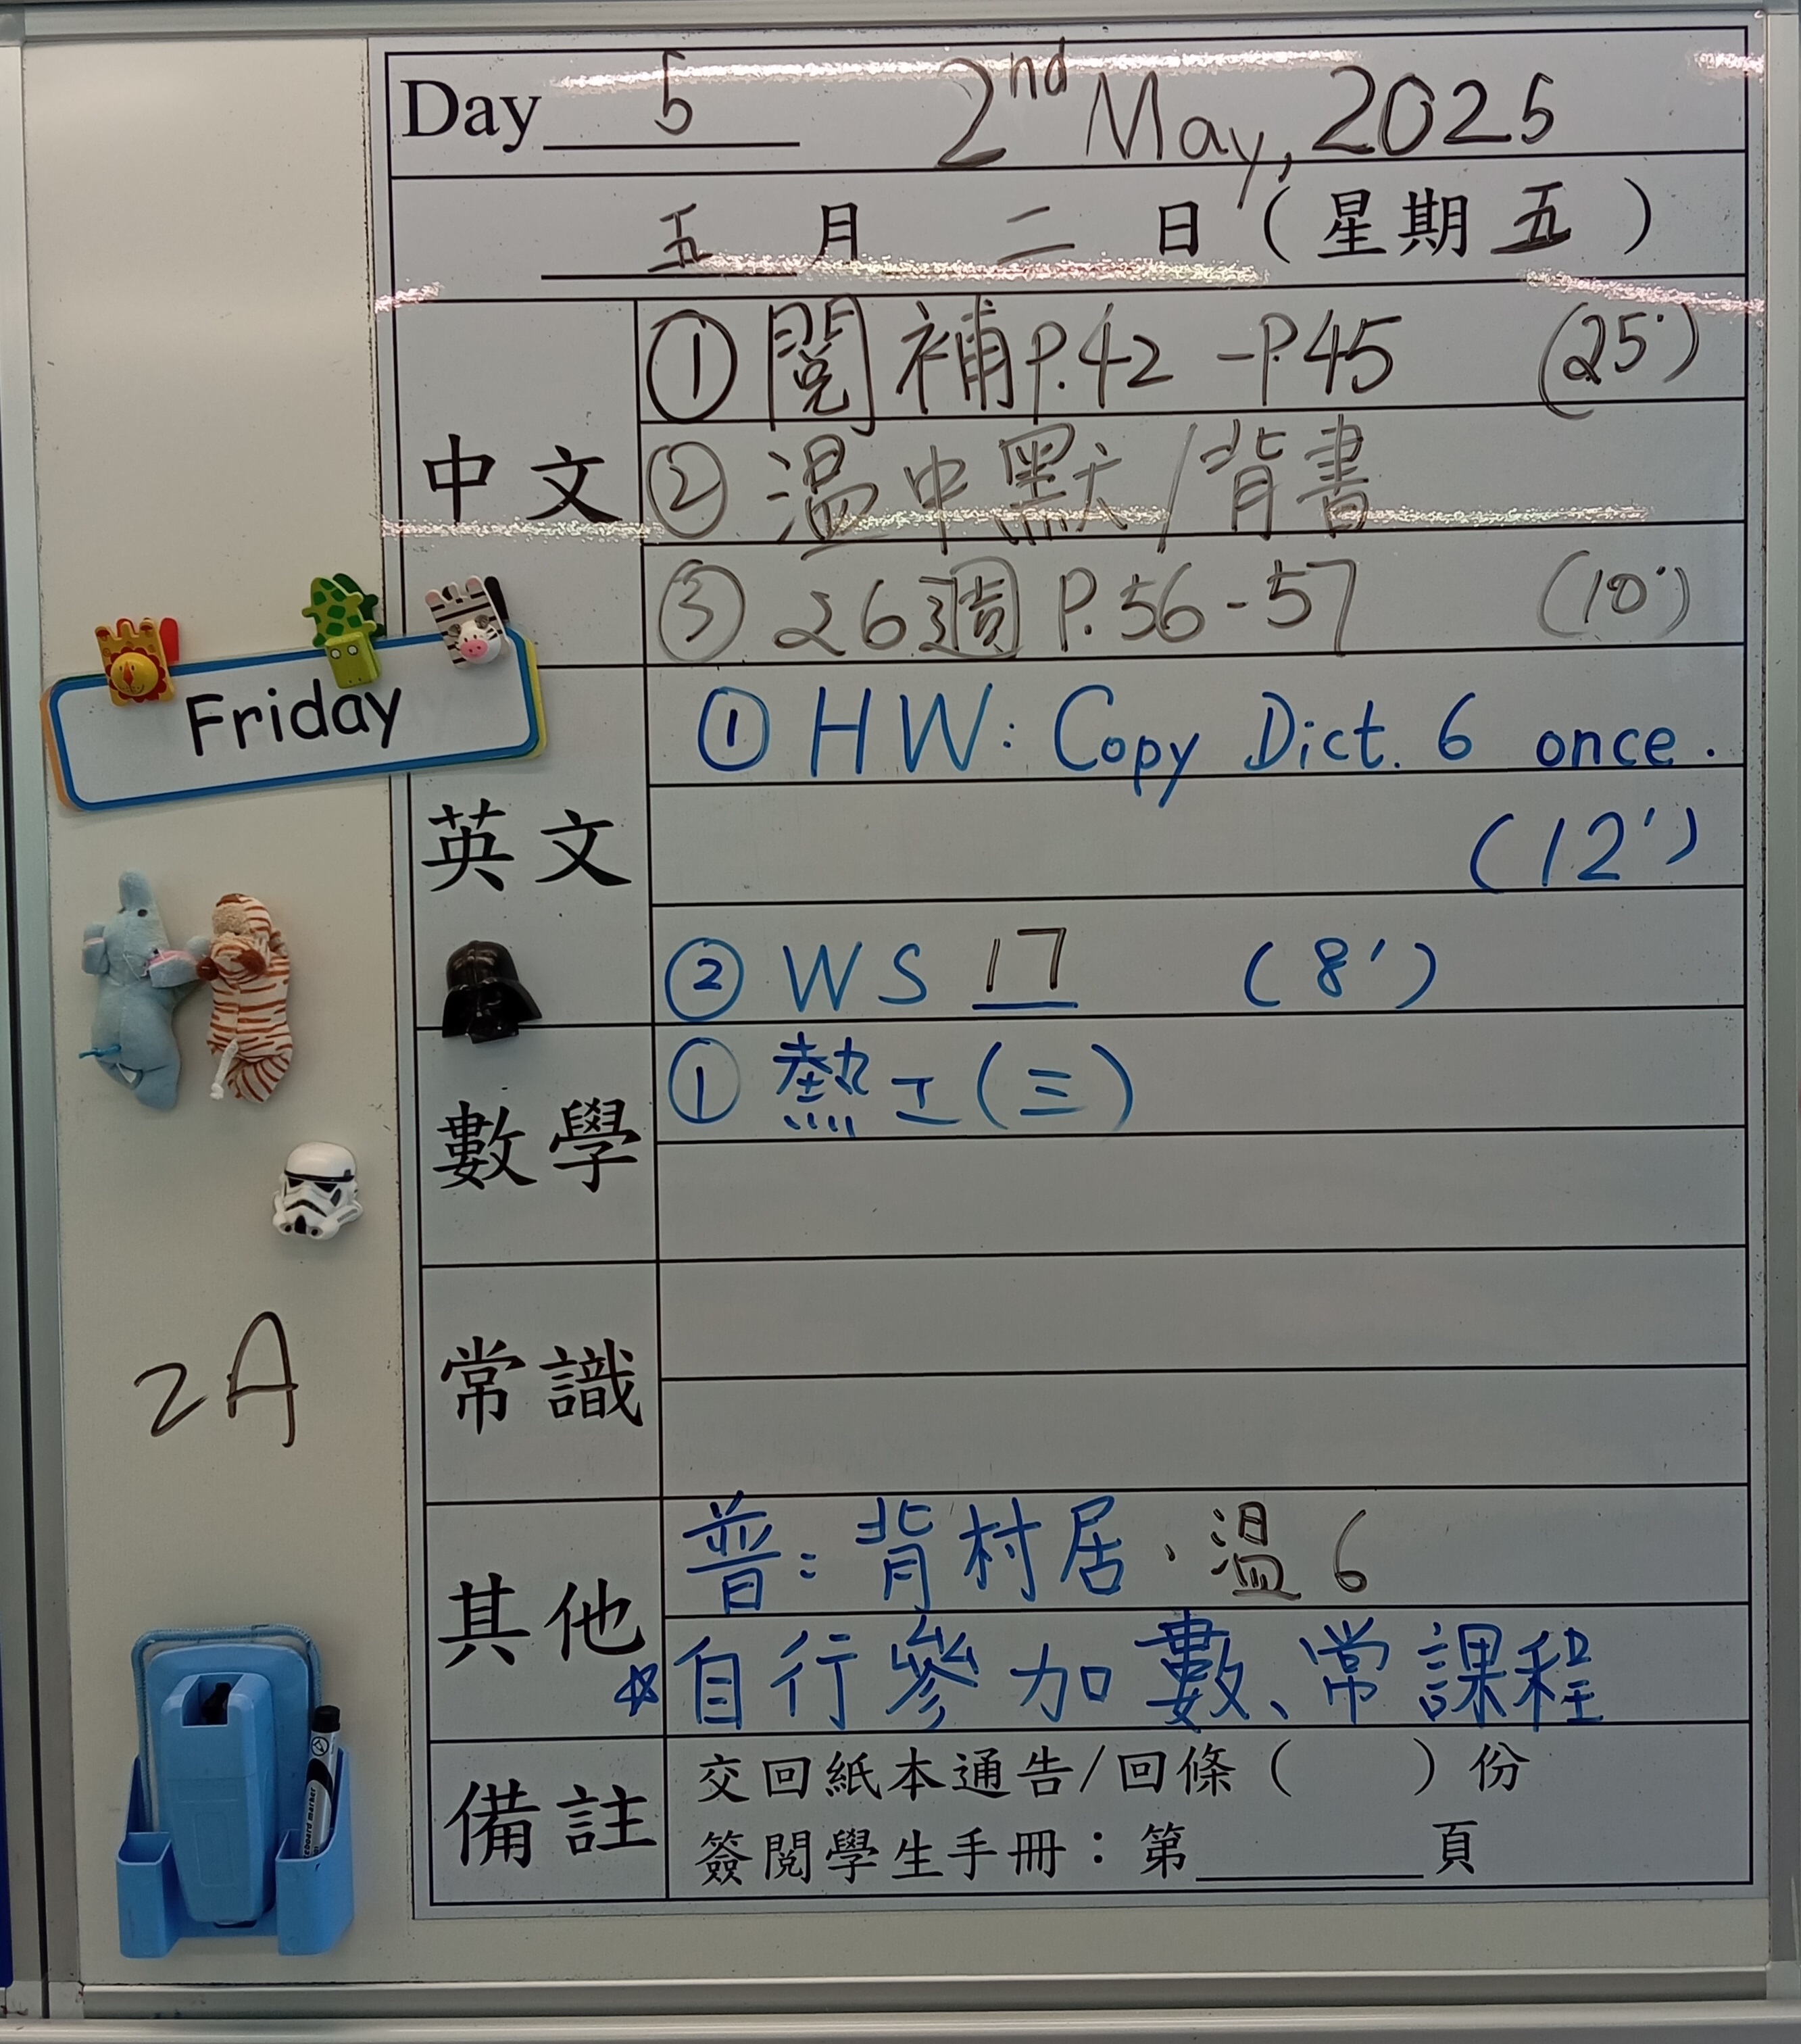 Day 5 2nd May, 2025
五 月 二 日 (星期 五 )
中文
① 閱補P.42 -P.45 (25')
② 溫中默/背書
③ 26週 P.56-57 (10')
Friday
英文
① HW: Copy Dict. 6 once.
(12')
② WS 17 (8')
數學
① 熱工(三)
常識
2A
其他
普: 背村居、溫6
☆自行參加數、常課程
備註
交回紙本通告/回條 ( ) 份
簽閱學生手冊：第 頁